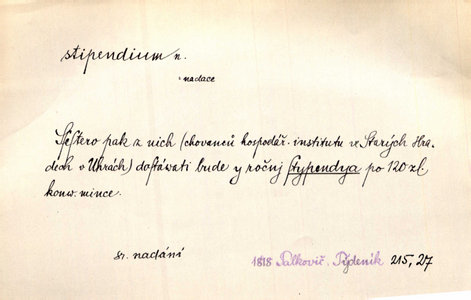 stipendium n.
nadace
Šestero pak z nich (chovanců hospodář. institutu ve Starých Hra-
dech v Uhrách) dostávati bude y ročnj stypendya po 120 zl.
konv. mince.
sr. nadání
1818 Palkovič, Týdeník 215, 217